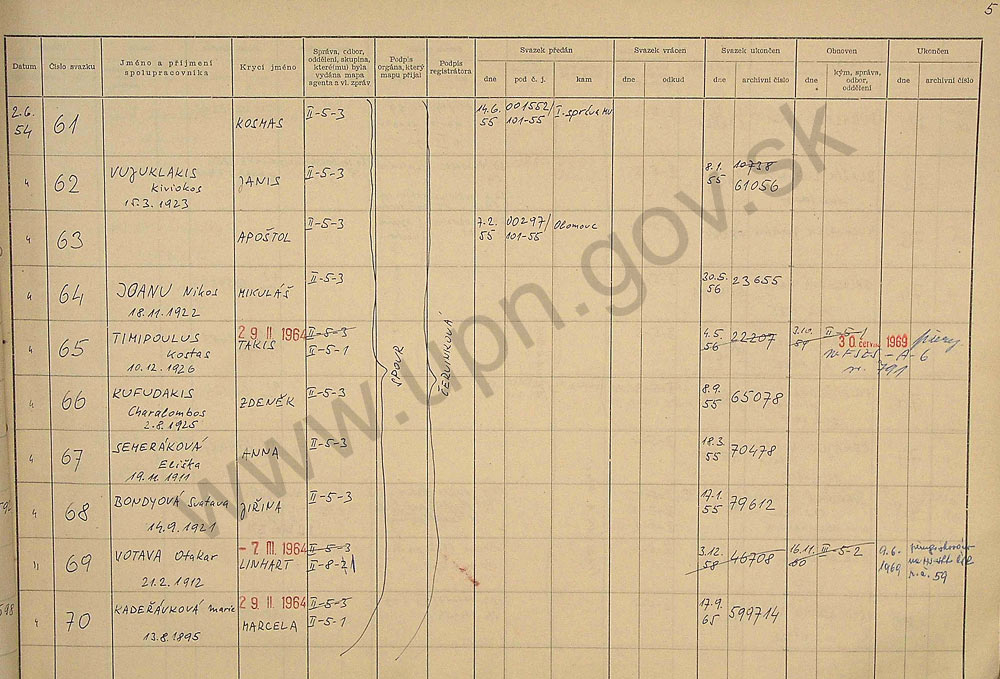 5
Datum
Číslo svazku
Jméno a příjmení
spolupracovníka
Krycí jméno
Správa, odbor,
oddělení, skupina,
které(mu) byla
vydána mapa
agenta a vl. zpráv
Podpis
orgána, který
mapu přijal
Podpis
registrátora
Svazek předán
dne
pod č. j.
kam
Svazek vrácen
dne
odkud
Svazek ukončen
dne
archivní číslo
Obnoven
dne
kým, správa,
odbor,
oddělení
Ukončen
dne
archivní číslo
2.6.
54
61
KOSMAS
II-5-3
14.6.
55
001552/
101-55
I. správa MV
62
VUJUKLAKIS
Kiviokos
15.3.1923
JANIS
II-5-3
8.1.
55
10738
61056
63
APOŠTOL
II-5-3
7.2.
55
00297/
101-55
Olomouc
64
JOANU Nikos
18.11.1922
MIKULÁŠ
II-5-3
30.5.
56
23655
65
TIMIPOULUS
Kostas
10.12.1926
29 II 1964
TAKIS
II-5-3
II-5-1
4.5.
56
22207
3.10.
59
II-5-1
30 června 1969
- A-6
791
66
KUFUDAKIS
Charalombos
2.8.1925
ZDENĚK
II-5-3
8.9.
55
65078
67
SEMERÁKOVÁ
Eliška
19.11.1911
ANNA
II-5-3
18.3.
55
70478
68
BONDYOVÁ Svatava
14.9.1921
JIŘINA
II-5-3
17.1.
55
79612
69
VOTAVA Otakar
21.2.1912
-7. III. 1964
LINHART
II-5-3
II-8-2
3.12.
58
46708
16.11.
60
II-5-2
9.6.
1969
59
70
KADEŘÁVKOVÁ Marie
13.8.1895
29 II 1964
MARCELA
II-5-3
II-5-1
17.9.
65
599714
SPOUR
ČERVINKOVÁ
www.upn.gov.sk